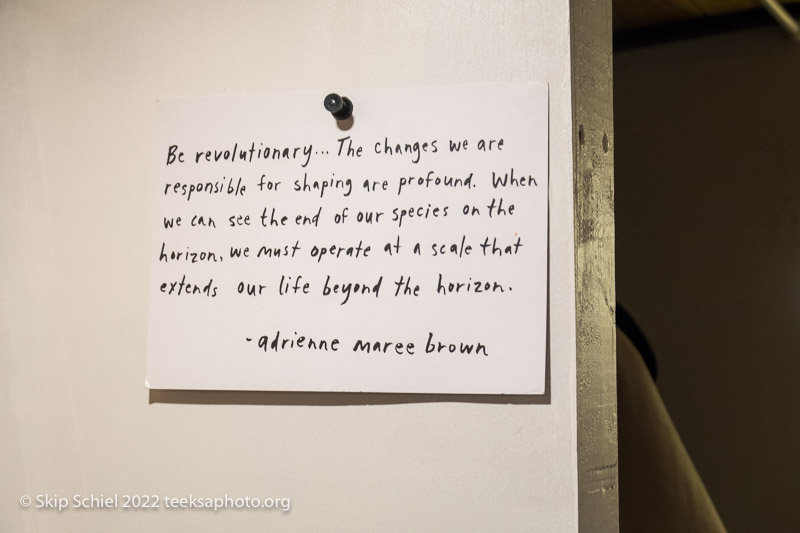 Be revolutionary... The changes we are
responsible for shaping are profound. When
we can see the end of our species on the
horizon, we must operate at a scale that
extends our life beyond the horizon.
-adrienne maree brown
© Skip Schiel 2022 teeksaphoto.org